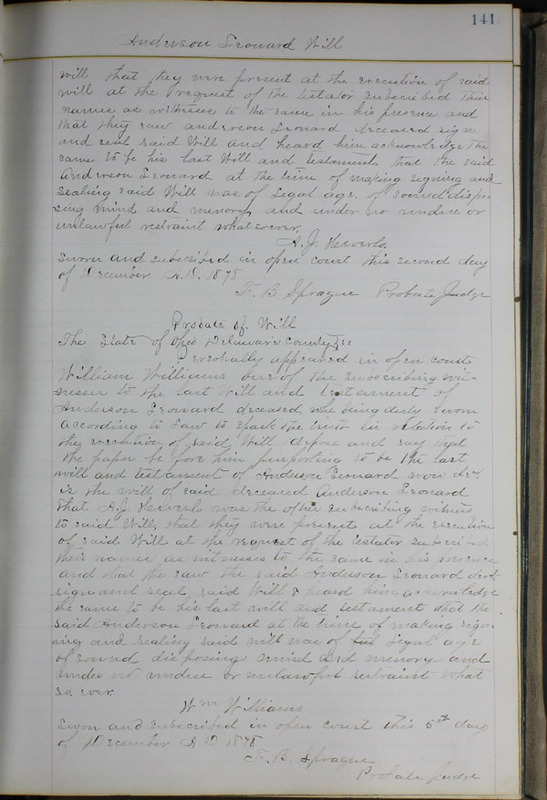 141
Anderson Leonard Will
will that they were present at the execution of said
will at the request of the testator subscribed their
names as witnesses to the same in his presence and
that they saw Anderson Leonard deceased sign
and seal said Will and heard him acknowledge the
same to be his last Will and testament, that the said
Anderson Leonard at the time of making signing and
sealing said Will was of legal age, of sound dispo
sing mind and memory and under no undue or
unlawful restraint whatsoever.
A. J.
Sworn and subscribed in open court this second day
of December A.D. 1878
F. B Sprague Probate Judge
Probate of Will
The State of Ohio Delaware County ss
Personally appeared in open court
William Williams one of the subscribing wit-
nesses to the last Will and testament of
Anderson Leonard deceased, who being duly sworn
according to law to speak the truth in relation to
the execution of said Will depose and say that
the paper before him purporting to be the last
will and testament of Anderson Leonard now decd
is the will of said deceased Anderson Leonard
that A. J. was the other subscribing witness
to said Will, that they were present at the execution
of said Will at the request of the testator subscribed
their names as witnesses to the same in his presence
and that the saw the said Anderson Leonard decd
sign and seal said Will & heard him acknowledge
the same to be his last will and testament that the
said Anderson Leonard at the time of making sign-
ing and sealing said will was of legal age
of sound disposing mind and memory and
under no undue or unlawful restraint what
so ever.
Wm Williams
Sworn and subscribed in open court this 5th day
of December A D 1878
F. B. Sprague
Probate Judge